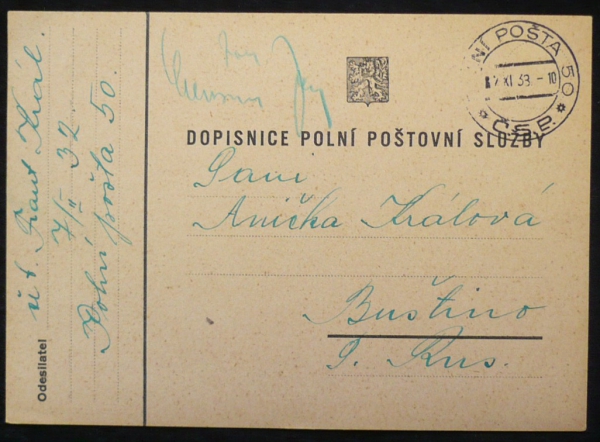 POLNÍ POŠTA 50
2 XI 38 - 10
Č.S.P.
DOPISNICE POLNÍ POŠTOVNÍ SLUŽBY
Paní
Anička Králová
Buštino
P. Rus.
Odesílatel
Frant Král.
7/II 32
Polní pošta 50.